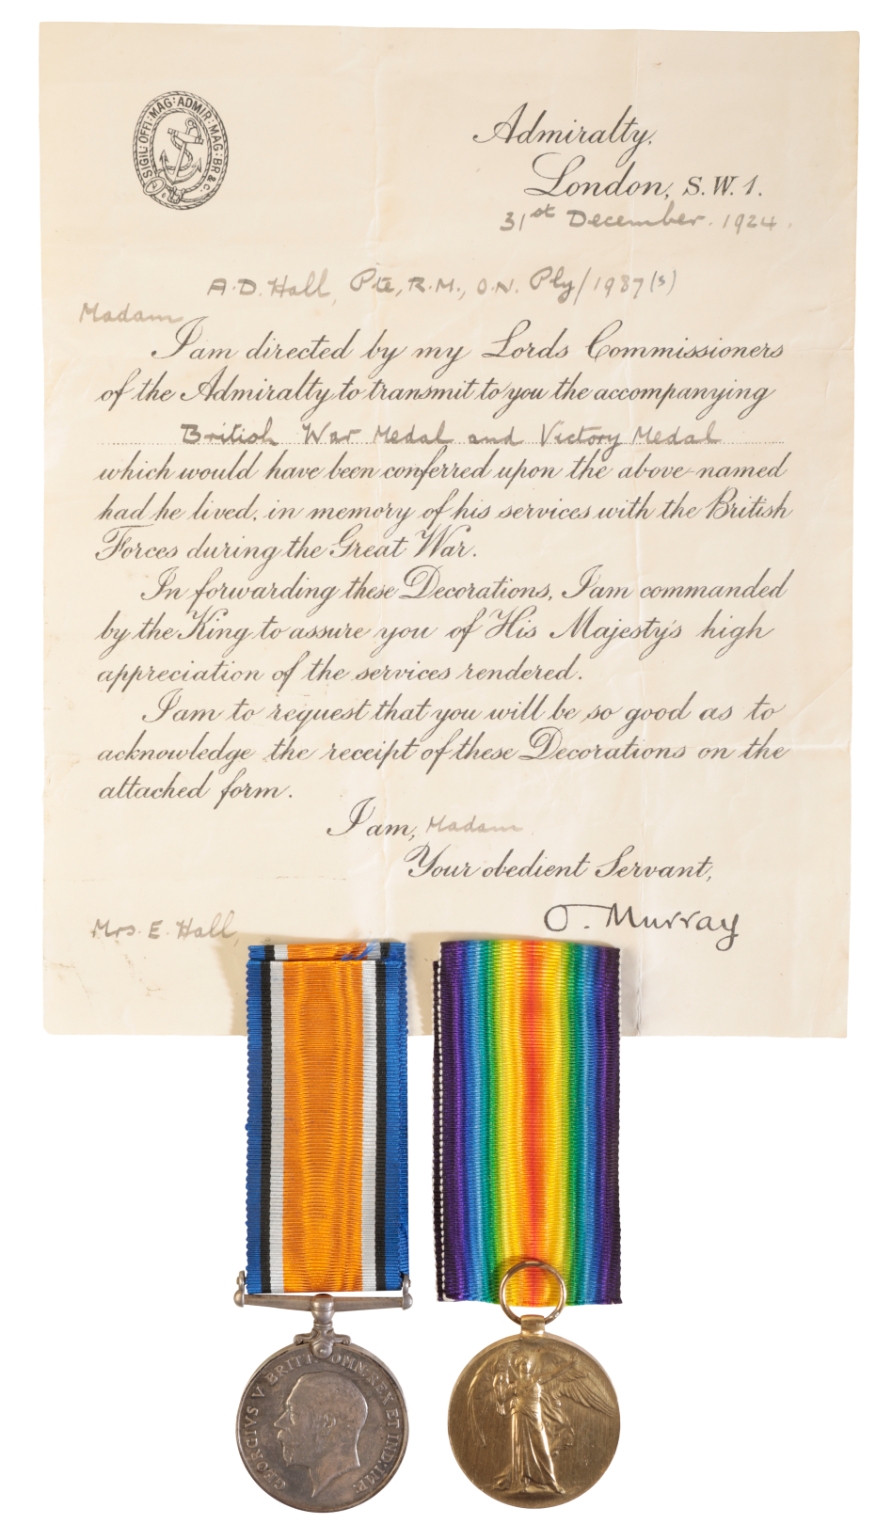 SIGIL:OFFI:MAG:ADMIR:MAG:BR:&C:
Admiralty,
London, S.W.1.
31st December. 1924.
A.D. Hall, Pte, R.M., O.N. Ply/1987(s)
Madam
I am directed by my Lords Commissioners
of the Admiralty to transmit to you the accompanying
British War Medal and Victory Medal
which would have been conferred upon the above-named
had he lived, in memory of his services with the British
Forces during the Great War.
In forwarding these Decorations, I am commanded
by the King to assure you of His Majesty's high
appreciation of the services rendered.
I am to request that you will be so good as to
acknowledge the receipt of these Decorations on the
attached form.
I am, Madam
Your obedient Servant,
O. Murray
Mrs. E. Hall,
GEORGIVS V BRITT: OMN:REX ET IND:IMP: